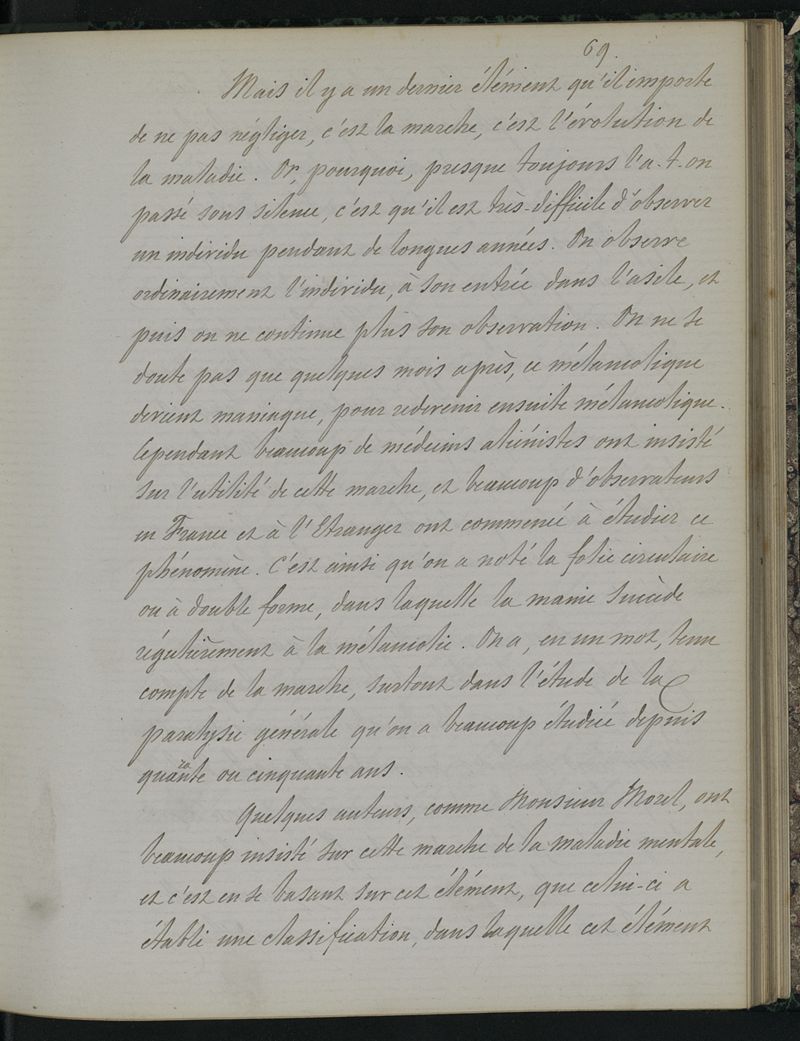 69.
Mais il y a un dernier élément qu'il importe
de ne pas négliger, c'est la marche, c'est l'évolution de
la maladie. Or, pourquoi, presque toujours l'a-t-on
passé sous silence, c'est qu'il est très-difficile d'observer
un individu pendant de longues années. On observe
ordinairement l'individu, à son entrée dans l'asile, et
puis on ne continue plus son observation. On ne se
doute pas que quelques mois après, ce mélancolique
devient maniaque, pour redevenir ensuite mélancolique.
Cependant beaucoup de médecins aliénistes ont insisté
sur l'utilité de cette marche, et beaucoup d'observateurs
en France et à l'Etranger ont commencé à étudier ce
phénomène. C'est ainsi qu'on a noté la folie circulaire
ou à double forme, dans laquelle la manie succède
régulièrement à la mélancolie. On a, en un mot, tenu
compte de la marche, surtout dans l'étude de la
paralysie générale qu'on a beaucoup étudiée depuis
quarante ou cinquante ans.
Quelques auteurs, comme Monsieur Morel, ont
beaucoup insisté sur cette marche de la maladie mentale,
et c'est en se basant sur cet élément, que celui-ci a
établi une classification, dans laquelle cet élément